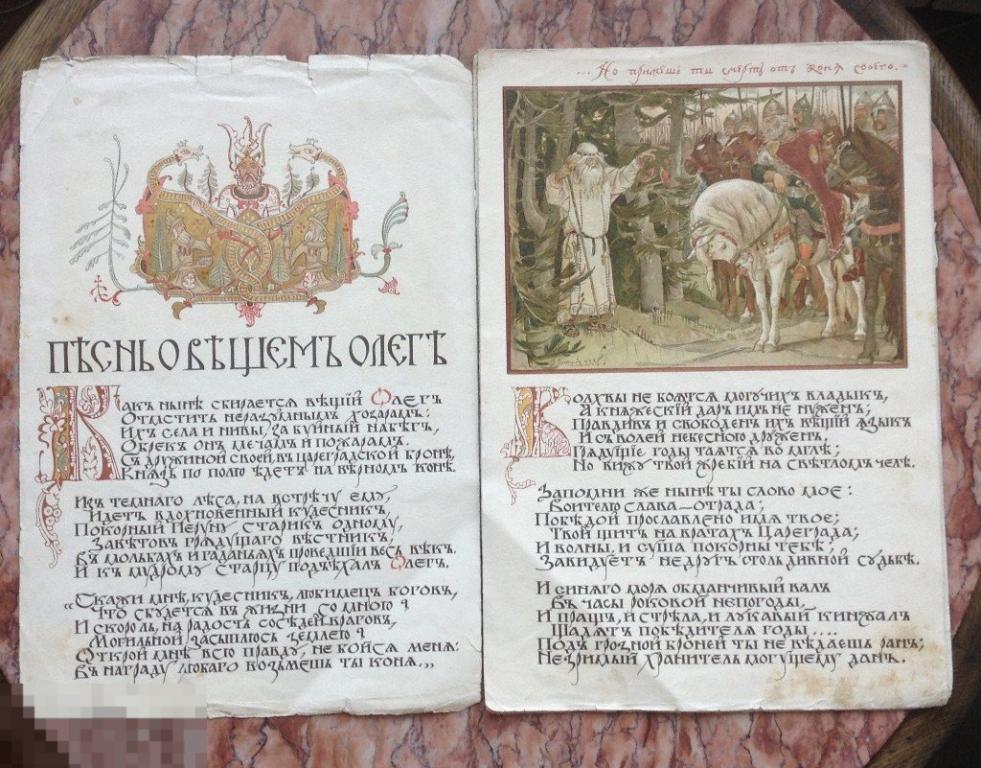 ПѢСНЬ О ВѢЩЕМЪ ОЛЕГѢ
Какъ нынѣ сбирается вѣщій Олегъ
Отмстить неразумнымъ хозарамъ:
Ихъ села и нивы, за буйный набѣгъ,
Обрекъ онъ мечамъ и пожарамъ.
Съ дружиной своей, въ цареградской бронѣ,
Князь по полю ѣдетъ на вѣрномъ конѣ.
Изъ темнаго лѣса, на встрѣчу ему,
Идетъ вдохновенный кудесникъ,
Покорный Перуну старикъ одному,
Завѣтовъ грядущаго вѣстникъ,
Въ мольбахъ и гаданьяхъ проведшій весь вѣкъ.
И къ мудрому старцу подъѣхалъ Олегъ.
„Скажи мнѣ, кудесникъ, любимецъ боговъ,
Что сбудется въ жизни со мною?
И скоро ль, на радость сосѣдей враговъ,
Могильной засыплюсь землею?
Открой мнѣ всю правду, не бойся меня:
Въ награду любаго возьмешь ты коня„.
...Но примешь ты смерть отъ коня своего.
Волхвы не боятся могучихъ владыкъ,
А княжескій даръ имъ не нуженъ;
Правдивъ и свободенъ ихъ вѣщій языкъ
И съ волей небесною друженъ.
Грядущіе годы таятся во мглѣ;
Но вижу твой жребій на свѣтломъ челѣ.
Запомни же нынѣ ты слово мое:
Воителю слава—отрада;
Побѣдой прославлено имя твое;
Твой щитъ на вратахъ Цареграда;
И волны, и суша покорны тебѣ;
Завидуетъ недругъ столь дивной судьбѣ.
И синяго моря обманчивый валъ
Въ часы роковой непогоды,
И пращъ, и стрѣла, и лукавый кинжалъ
Щадятъ побѣдителя годы....
Подъ грозной броней ты не вѣдаешь ранъ;
Незримый хранитель могущему данъ.